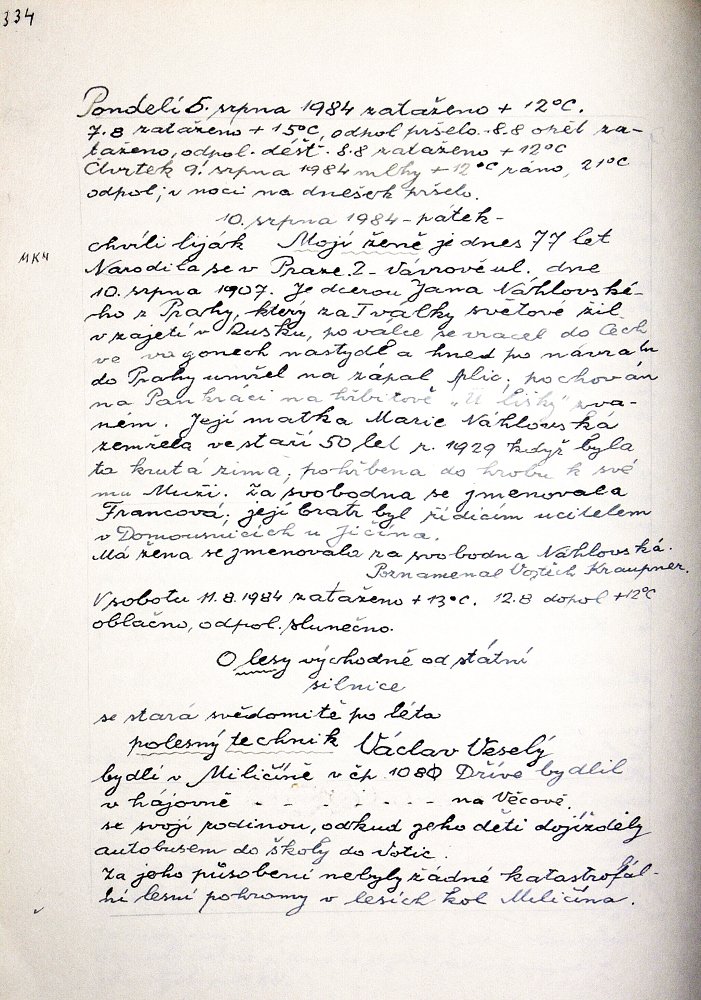 334
Pondelí 6. srpna 1984 zataženo + 12°C.
7.8 zataženo + 15°C, odpol pršelo. 8.8 opět za-
taženo, odpol. déšť. 8.8 zataženo + 12°C
Čtvrtek 9. srpna 1984 mlhy + 12°C ráno, 21°C
odpol; v noci na dnešek pršelo.
10. srpna 1984 - pátek -
chvíli liják Mojí ženě je dnes 77 let
MKN
Narodila se v Praze 2 - Vávrově ul. dne
10. srpna 1907. Je dcerou Jana Náhlovské-
ho z Prahy, který za I války světové žil
v zajetí v Rusku, po válce se vracel do Čech
ve vagonech nastydl a hned po návratu
do Prahy umřel na zápal plic; pochován
na Pankráci na hřbitově „U lišky" zva-
ném. Její matka Marie Náhlovská
zemřela ve staří 50 let r. 1929 když byla
ta krutá zima; pohřbena do hrobu k své
mu Muži. Za svobodna se jmenovala
Francová; její bratr byl řídícím učitelem
v Domousnicích u Jičína.
Má žena se jmenovala za svobodna Náhlovská.
Poznamenal Vojtěch Kraupner.
V sobotu 11.8.1984 zataženo + 13°C. 12.8 dopol +12°C
oblačno, odpol. slunečno.
O lesy východně od státní
silnice
se stará svědomitě po léta
polesný technik Václav Veselý
bydlí v Miličíně v čp. 108 Dříve bydlil
v hájovně - - - - - - - na Věcově.
se svojí rodinou, odkud jeho děti dojížděly
autobusem do školy do Votic.
Za jeho působení nebyly žádné katastrofál-
ní lesní pohromy v lesích kol Miličína.